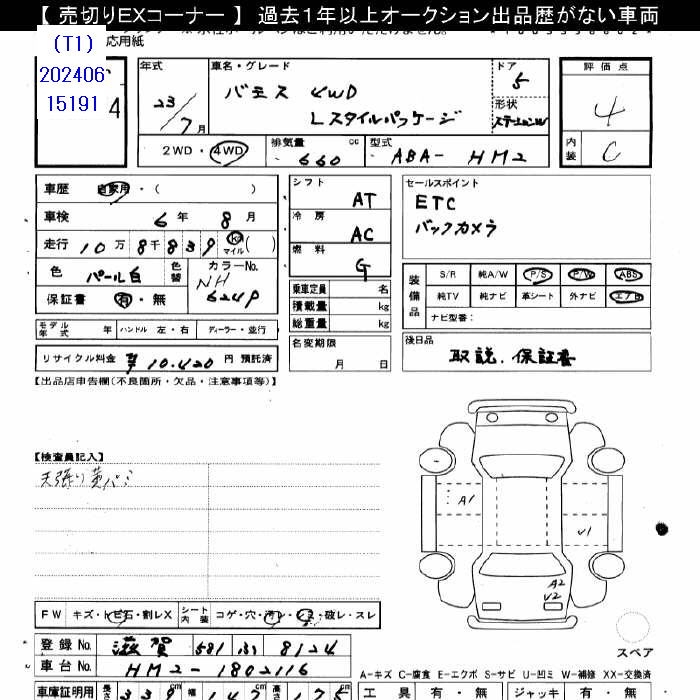 【 売切りEXコーナー 】 過去1年以上オークション出品歴がない車両
応用紙
(T1)
202406
15191
4
年式
23/7月
車名・グレード
バモス 4WD
Lスタイルパッケージ
ドア
5
形状
ステーションW
評価点
4
内装
C
2WD・4WD
排気量
660
cc
型式
ABA- HM2
車歴 自家用・( )
車検 6年 8月
走行 10万8千839 km マイル ( )
色 パール白 色替 カラーNo.
NH
624P
保証書 有・無
モデル年式 年 ハンドル 左・右 ディーラー・並行
リサイクル料金 ¥10.420 円 預託済
シフト
AT
冷房
AC
燃料
G
乗車定員 名
積載量 kg
総重量 kg
名変期限
月 日
セールスポイント
ETC
バックカメラ
装備品
S/R 純A/W P/S P/W ABS
純TV 純ナビ 革シート 外ナビ エアB
ナビ型番:
後日品
取説、保証書
【出品店申告欄(不良箇所・欠品・注意事項等)】
【検査員記入】
天張り黄バミ
A1
U1
A2
U2
スペア
FW キズ・ヒ石・割レX シート内装 コゲ・穴・汚レ・シミ・破レ・スレ
登録No. 滋賀 581 わ 8124
車台No. HM2-1802116
A-キズ C-腐食 E-エクボ S-サビ U-凹ミ W-補修 XX-交換済
車庫証明用 長さ 339 cm 幅 147 cm 高さ 175 cm
工具 有・無 ジャッキ 有・無